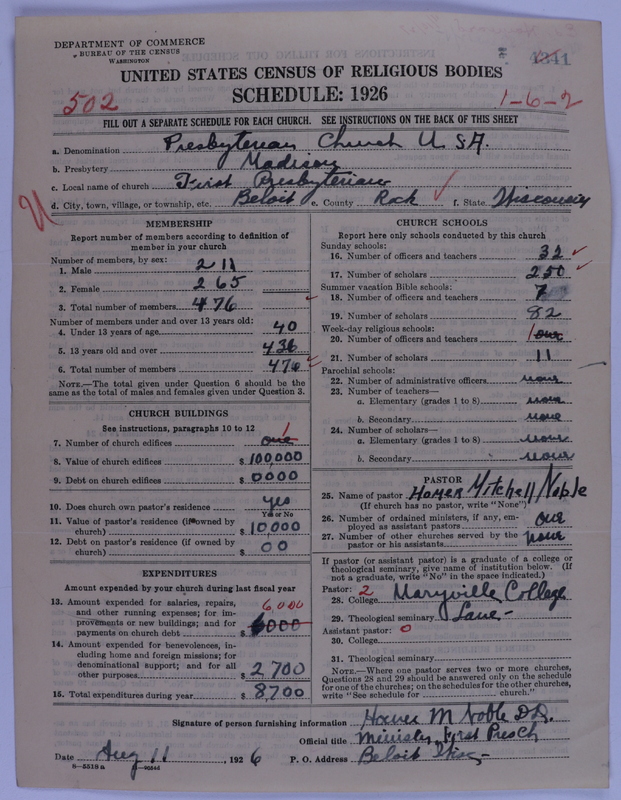 DEPARTMENT OF COMMERCE
BUREAU OF THE CENSUS
WASHINGTON
4341
UNITED STATES CENSUS OF RELIGIOUS BODIES
502 SCHEDULE: 1926 1-6-2
FILL OUT A SEPARATE SCHEDULE FOR EACH CHURCH. SEE INSTRUCTIONS ON THE BACK OF THIS SHEET
a. Denomination Presbyterian Church U. S. A.
b. Presbytery Madison
c. Local name of church First Presbyterian
d. City, town, village, or township, etc. Beloit e. County Rock f. State Wisconsin
MEMBERSHIP
Report number of members according to definition of
member in your church
Number of members, by sex:
1. Male 211
2. Female 265
3. Total number of members 476
Number of members under and over 13 years old:
4. Under 13 years of age 40
5. 13 years old and over 436
6. Total number of members 476
NOTE.—The total given under Question 6 should be
the same as the total of males and females given under Question 3.
CHURCH BUILDINGS
See instructions, paragraphs 10 to 12
7. Number of church edifices one 1
8. Value of church edifices $ 100,000
9. Debt on church edifices $ 0000
10. Does church own pastor's residence yes
Yes or No
11. Value of pastor's residence (if owned by
church) $ 10,000
12. Debt on pastor's residence (if owned by
church) $ 00
EXPENDITURES
Amount expended by your church during last fiscal year
13. Amount expended for salaries, repairs,
and other running expenses; for im-
provements or new buildings; and for
payments on church debt $ 6000 6,000
14. Amount expended for benevolences, in-
cluding home and foreign missions; for
denominational support; and for all
other purposes $ 2700
15. Total expenditures during year $ 8700
CHURCH SCHOOLS
Report here only schools conducted by this church
Sunday schools:
16. Number of officers and teachers 32
17. Number of scholars 250
Summer vacation Bible schools:
18. Number of officers and teachers 7
19. Number of scholars 82
Week-day religious schools:
20. Number of officers and teachers 1 one
21. Number of scholars 11
Parochial schools:
22. Number of administrative officers none
23. Number of teachers—
a. Elementary (grades 1 to 8) none
b. Secondary none
24. Number of scholars—
a. Elementary (grades 1 to 8) none
b. Secondary none
PASTOR
25. Name of pastor Homer Mitchell Noble
(If church has no pastor, write "None")
26. Number of ordained ministers, if any, em-
ployed as assistant pastors one
27. Number of other churches served by the
pastor or his assistants none
If pastor (or assistant pastor) is a graduate of a college or
theological seminary, give name of institution below. (If
not a graduate, write "No" in the space indicated.)
Pastor: 2
28. College Maryville College
29. Theological seminary Lane
Assistant pastor: 0
30. College
31. Theological seminary
NOTE.—Where one pastor serves two or more churches,
Questions 28 and 29 should be answered only on the schedule
for one of the churches; on the schedules for the other churches,
write "See schedule for church."
Signature of person furnishing information Homer M Noble D.D.
Official title Minister First Presch
Date Aug 11, 1926 P. O. Address Beloit Wisc
8—5518 a